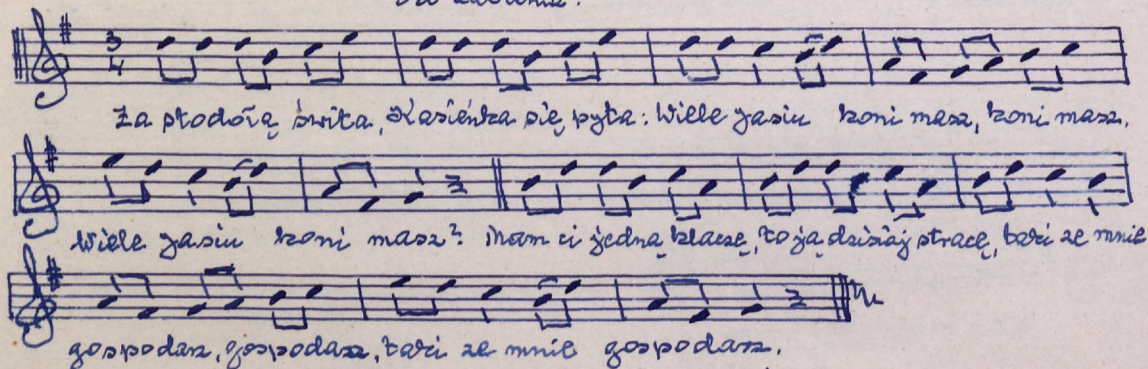 3
4
Za stodołą świta, Kasieńka się pyta: Wiele Jasiu koni masz, koni masz,
Wiele Jasiu koni masz? Mam ci jedną klaczę, to ją dzisiaj stracę, taki ze mnie
gospodarz, gospodarz, taki ze mnie gospodarz.